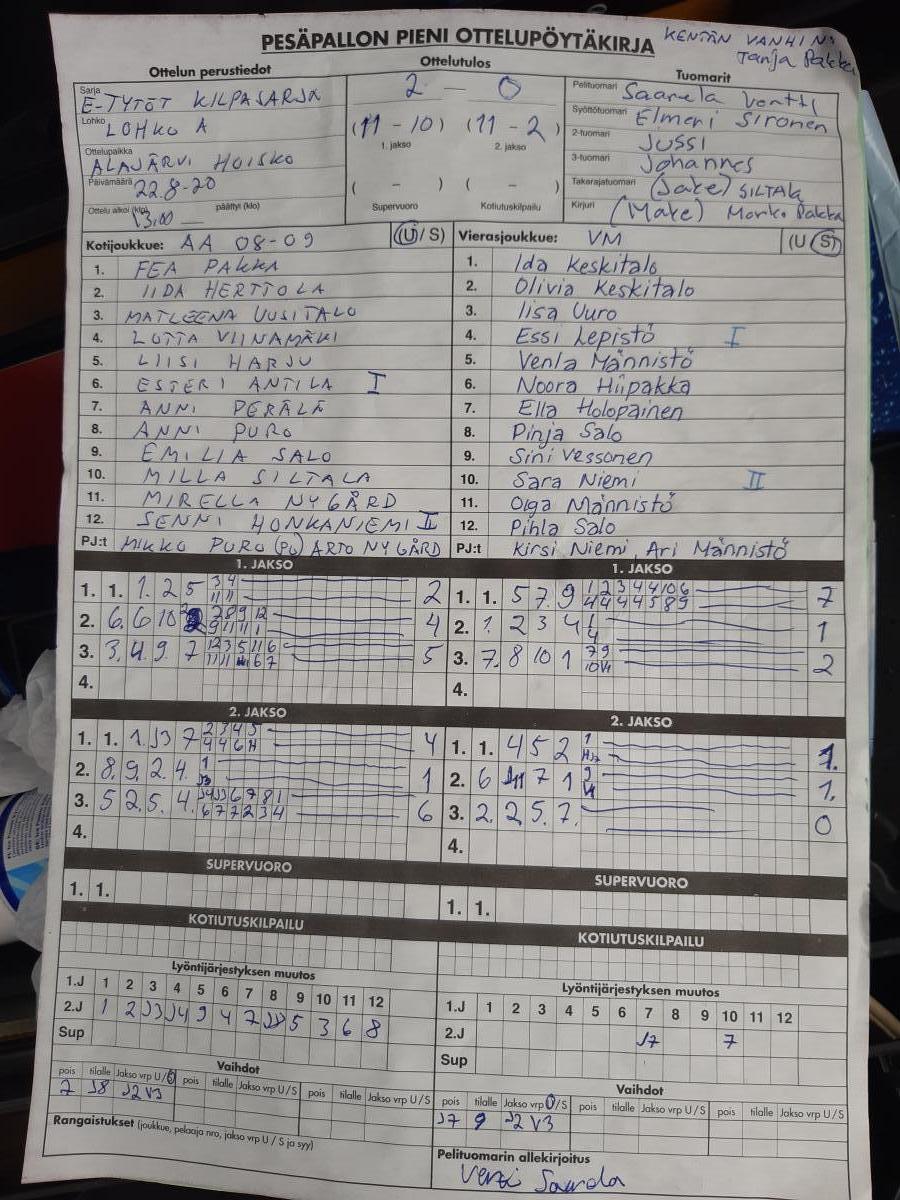 PESÄPALLON PIENI OTTELUPÖYTÄKIRJA
KENTÄN VANHIN:
Tanja Pakka
Ottelun perustiedot
Ottelutulos
Tuomarit
Sarja
E-TYTÖT KILPASARJA
Lohko
LOHKO A
Ottelupaikka
ALAJÄRVI HOISKO
Päivämäärä
22.8-20
Ottelu alkoi (klo) 13.00 päättyi (klo)
2 — 0
(11 - 10) (11 - 2)
1. jakso 2. jakso
( - ) ( - )
Supervuoro Kotiutuskilpailu
Pelituomari Saarela
Syöttötuomari Elmeri Sironen
2-tuomari Jussi
3-tuomari Johannes
Takarajatuomari (Jate) SILTALA
Kirjuri (Make) Marko Pakka
Kotijoukkue: AA 08-09 (U / S)
1. FEA PAKKA
2. IIDA HERTTOLA
3. MATLEENA UUSITALO
4. LOTTA VIINAMÄKI
5. LIISI HARJU
6. ESTERI ANTILA I
7. ANNI PERÄLÄ
8. ANNI PURO
9. EMILIA SALO
10. MILLA SILTALA
11. MIRELLA NYGÅRD
12. SENNI HONKANIEMI II
PJ:t MIKKO PURO (PJ) ARTO NYGÅRD
Vierasjoukkue: VM (U / S)
1. Ida Keskitalo
2. Olivia Keskitalo
3. Iisa Uuro
4. Essi Lepistö I
5. Venla Männistö
6. Noora Hiipakka
7. Ella Holopainen
8. Pinja Salo
9. Sini Vessonen
10. Sara Niemi II
11. Olga Männistö
12. Pihla Salo
PJ:t Kirsi Niemi, Ari Männistö
1. JAKSO
1. 1. 1. 2 5 2
2. 6. 6 10 4
3. 3. 4. 9 7 5
4.
1. JAKSO
1. 1. 5 7. 9 7
2. 1. 2 3 4 1
3. 7. 8 10 1 2
4.
2. JAKSO
1. 1. 1. 7 4
2. 8. 9. 2 4. 1
3. 5 2. 5. 4. 6
4.
2. JAKSO
1. 1. 4 5 2 1.
2. 6 7 1 1.
3. 2. 2 5. 7. 0
4.
SUPERVUORO
1. 1.
SUPERVUORO
1. 1.
KOTIUTUSKILPAILU
KOTIUTUSKILPAILU
Lyöntijärjestyksen muutos
1.J 1 2 3 4 5 6 7 8 9 10 11 12
2.J 1 2 9 4 7 5 3 6 8
Sup
Lyöntijärjestyksen muutos
1.J 1 2 3 4 5 6 7 8 9 10 11 12
2.J J7 7
Sup
Vaihdot
pois tilalle Jakso vrp U/S pois tilalle Jakso vrp U/S pois tilalle Jakso vrp U/S
7 J8 J2 V3
Rangaistukset (joukkue, pelaaja nro, jakso vrp U / S ja syy)
Vaihdot
pois tilalle Jakso vrp U/S pois tilalle Jakso vrp U/S pois tilalle Jakso vrp U/S
J7 9 J2 V3
Pelituomarin allekirjoitus